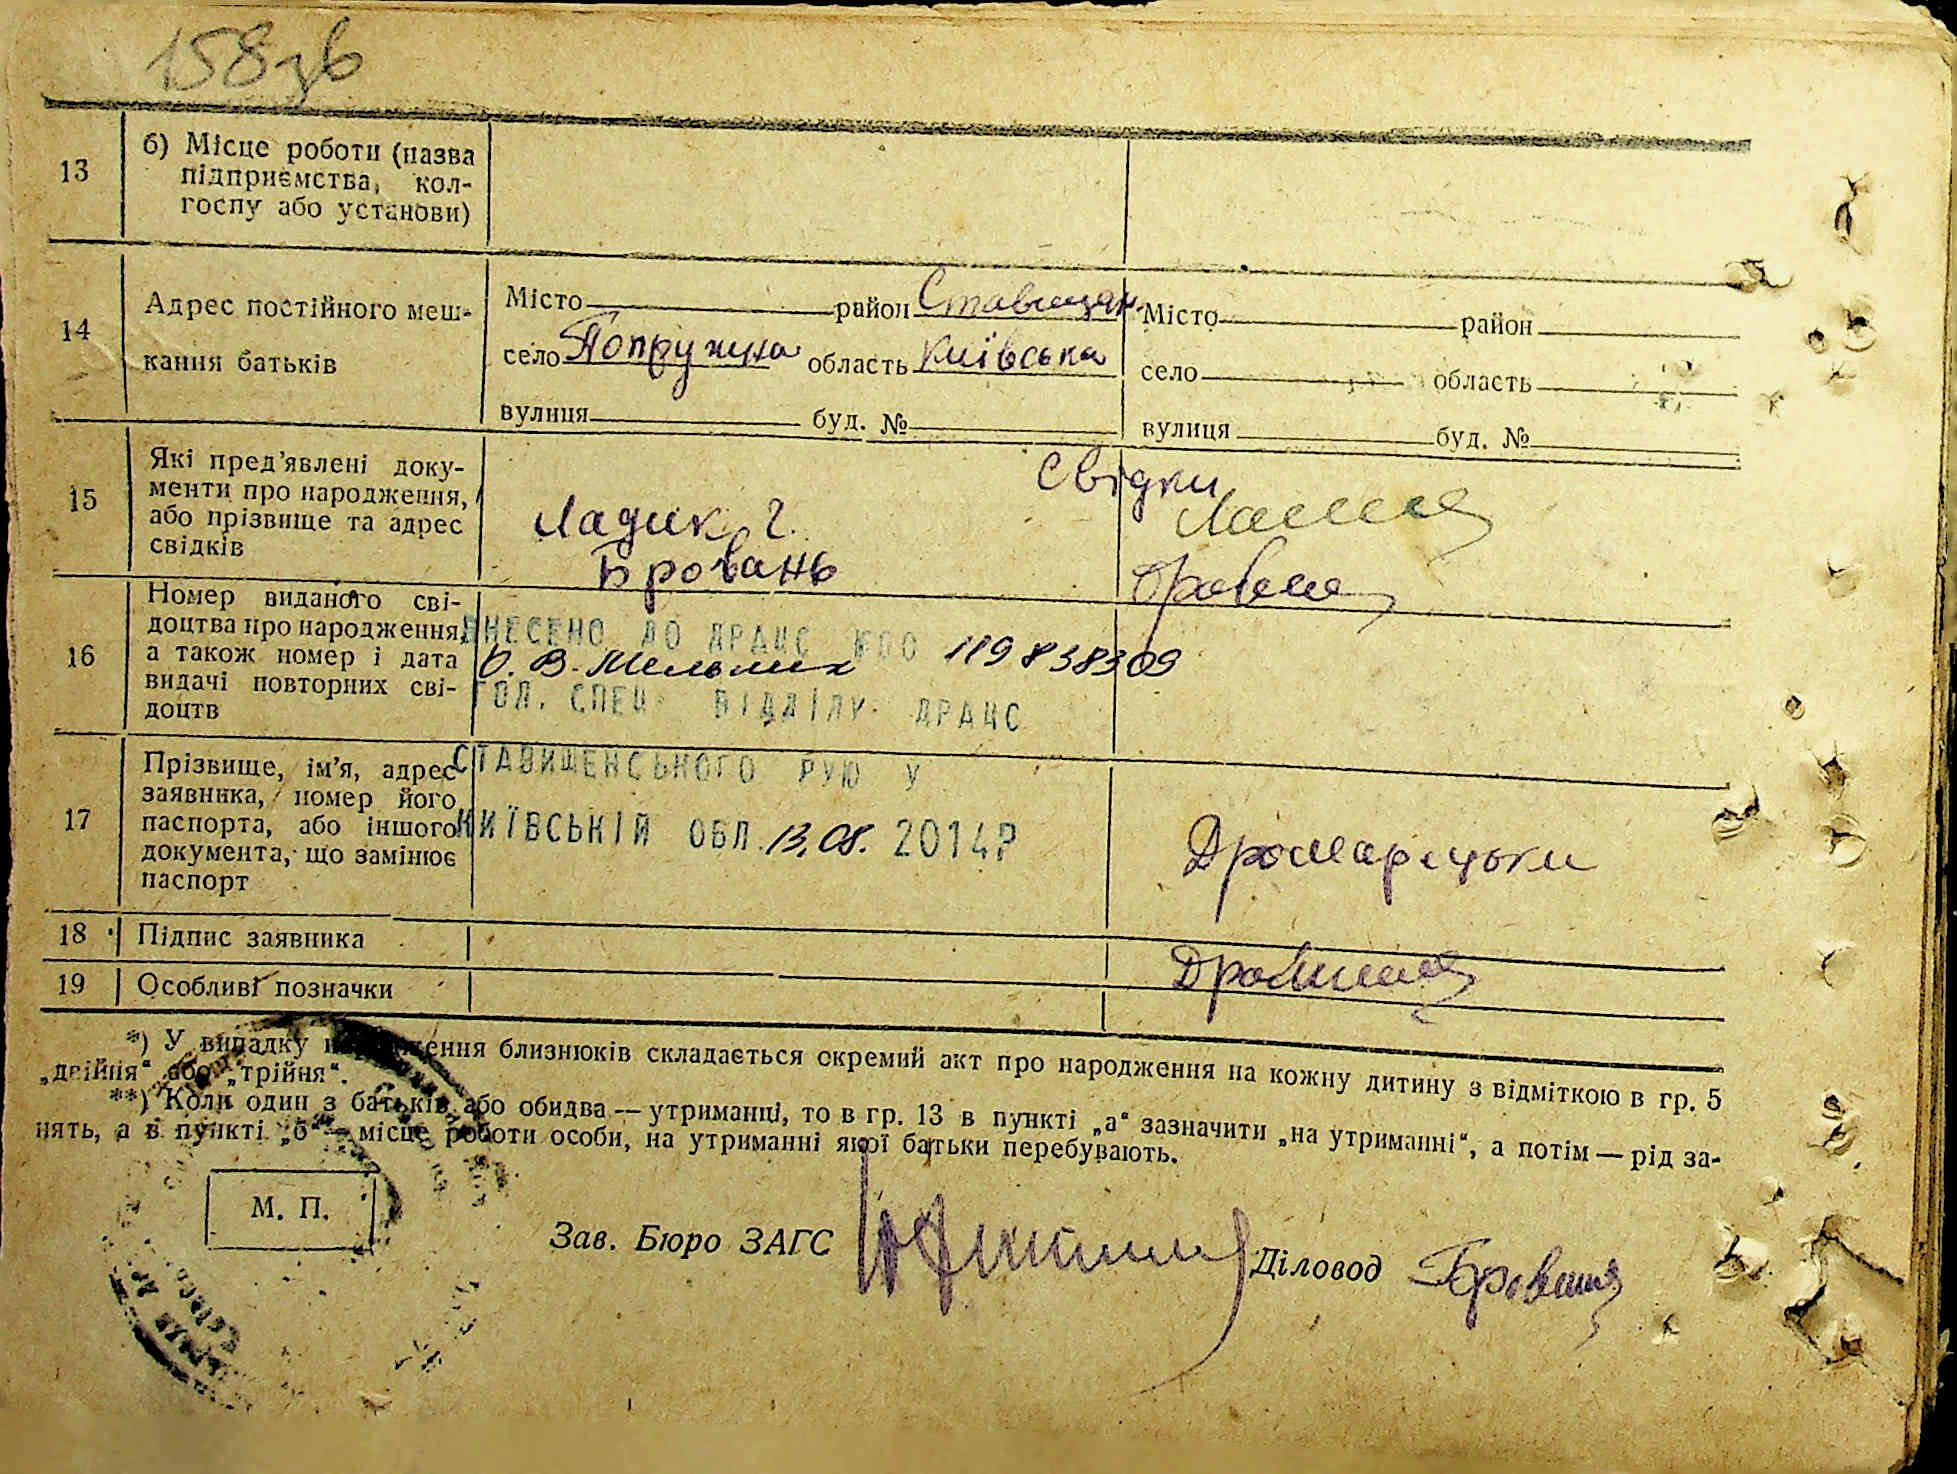 158зв
13
б) Місце роботи (назва
підприємства, кол-
госпу або установи)
14
Адрес постійного меш-
кання батьків
Місто район Ставищан.
село Попружна область Київська
вулиця буд. №
Місто район
село область
вулиця буд. №
15
Які пред’явлені доку-
менти про народження,
або прізвище та адрес
свідків
Свідки
Ладик Г.
Бровань
16
Номер виданого сві-
доцтва про народження,
а також номер і дата
видачі повторних сві-
доцтв
ВНЕСЕНО ДО ДРАЦС
О. В. Мельник 119838309
ГОЛ. СПЕЦ. ВІДДІЛУ ДРАЦС
СТАВИЩЕНСЬКОГО РУЮ У
КИЇВСЬКІЙ ОБЛ. 13.08. 2014Р
17
Прізвище, ім’я, адрес
заявника, номер його
паспорта, або іншого
документа, що замінює
паспорт
18 Підпис заявника
19 Особливі позначки
*) У випадку народження близнюків складається окремий акт про народження на кожну дитину з відміткою в гр. 5
„двійня“ або „трійня“.
**) Коли один з батьків або обидва — утриманці, то в гр. 13 в пункті „а“ зазначити „на утриманні“, а потім — рід за-
нять, а в пункті „б“ — місце роботи особи, на утриманні якої батьки перебувають.
М. П.
Зав. Бюро ЗАГС
Діловод